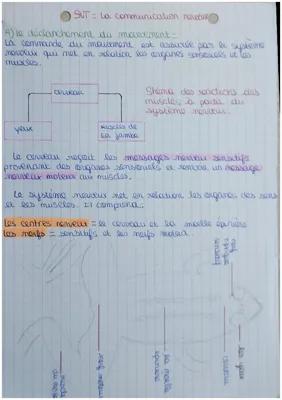 SVT : La communication nerveuse
A) le déclenchement du mouvement :
La commande du mouvement est assurée par le système
nerveux qui met en relation les organes sensoriels et les
muscles.
cerveau
yeux
muscles de
la jambe
Shéma des réactions des
muscles à partir du
système nerveux.
Le cerveau reçoit les messages nerveux sensitifs
provenant des organes sensoriels et renvoie un message
nerveux moteur aux muscles.
Le système nerveux met en relation les organes des sens
et les muscles. Il comprend :
Les centres nerveux = le cerveau et la moelle épinière
Les nerfs = sensitifs et les nerfs moteurs.
nerf
optique
les yeux
cerveau
la moelle
épinière
nerf moteur